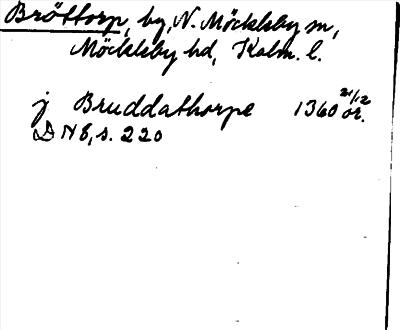 Bröttorp, by, N. Möckleby sn,
Möckleby hd, Kalm. l.
j Bruddathorpe 1360 21/12 or.
D N 8, s. 220